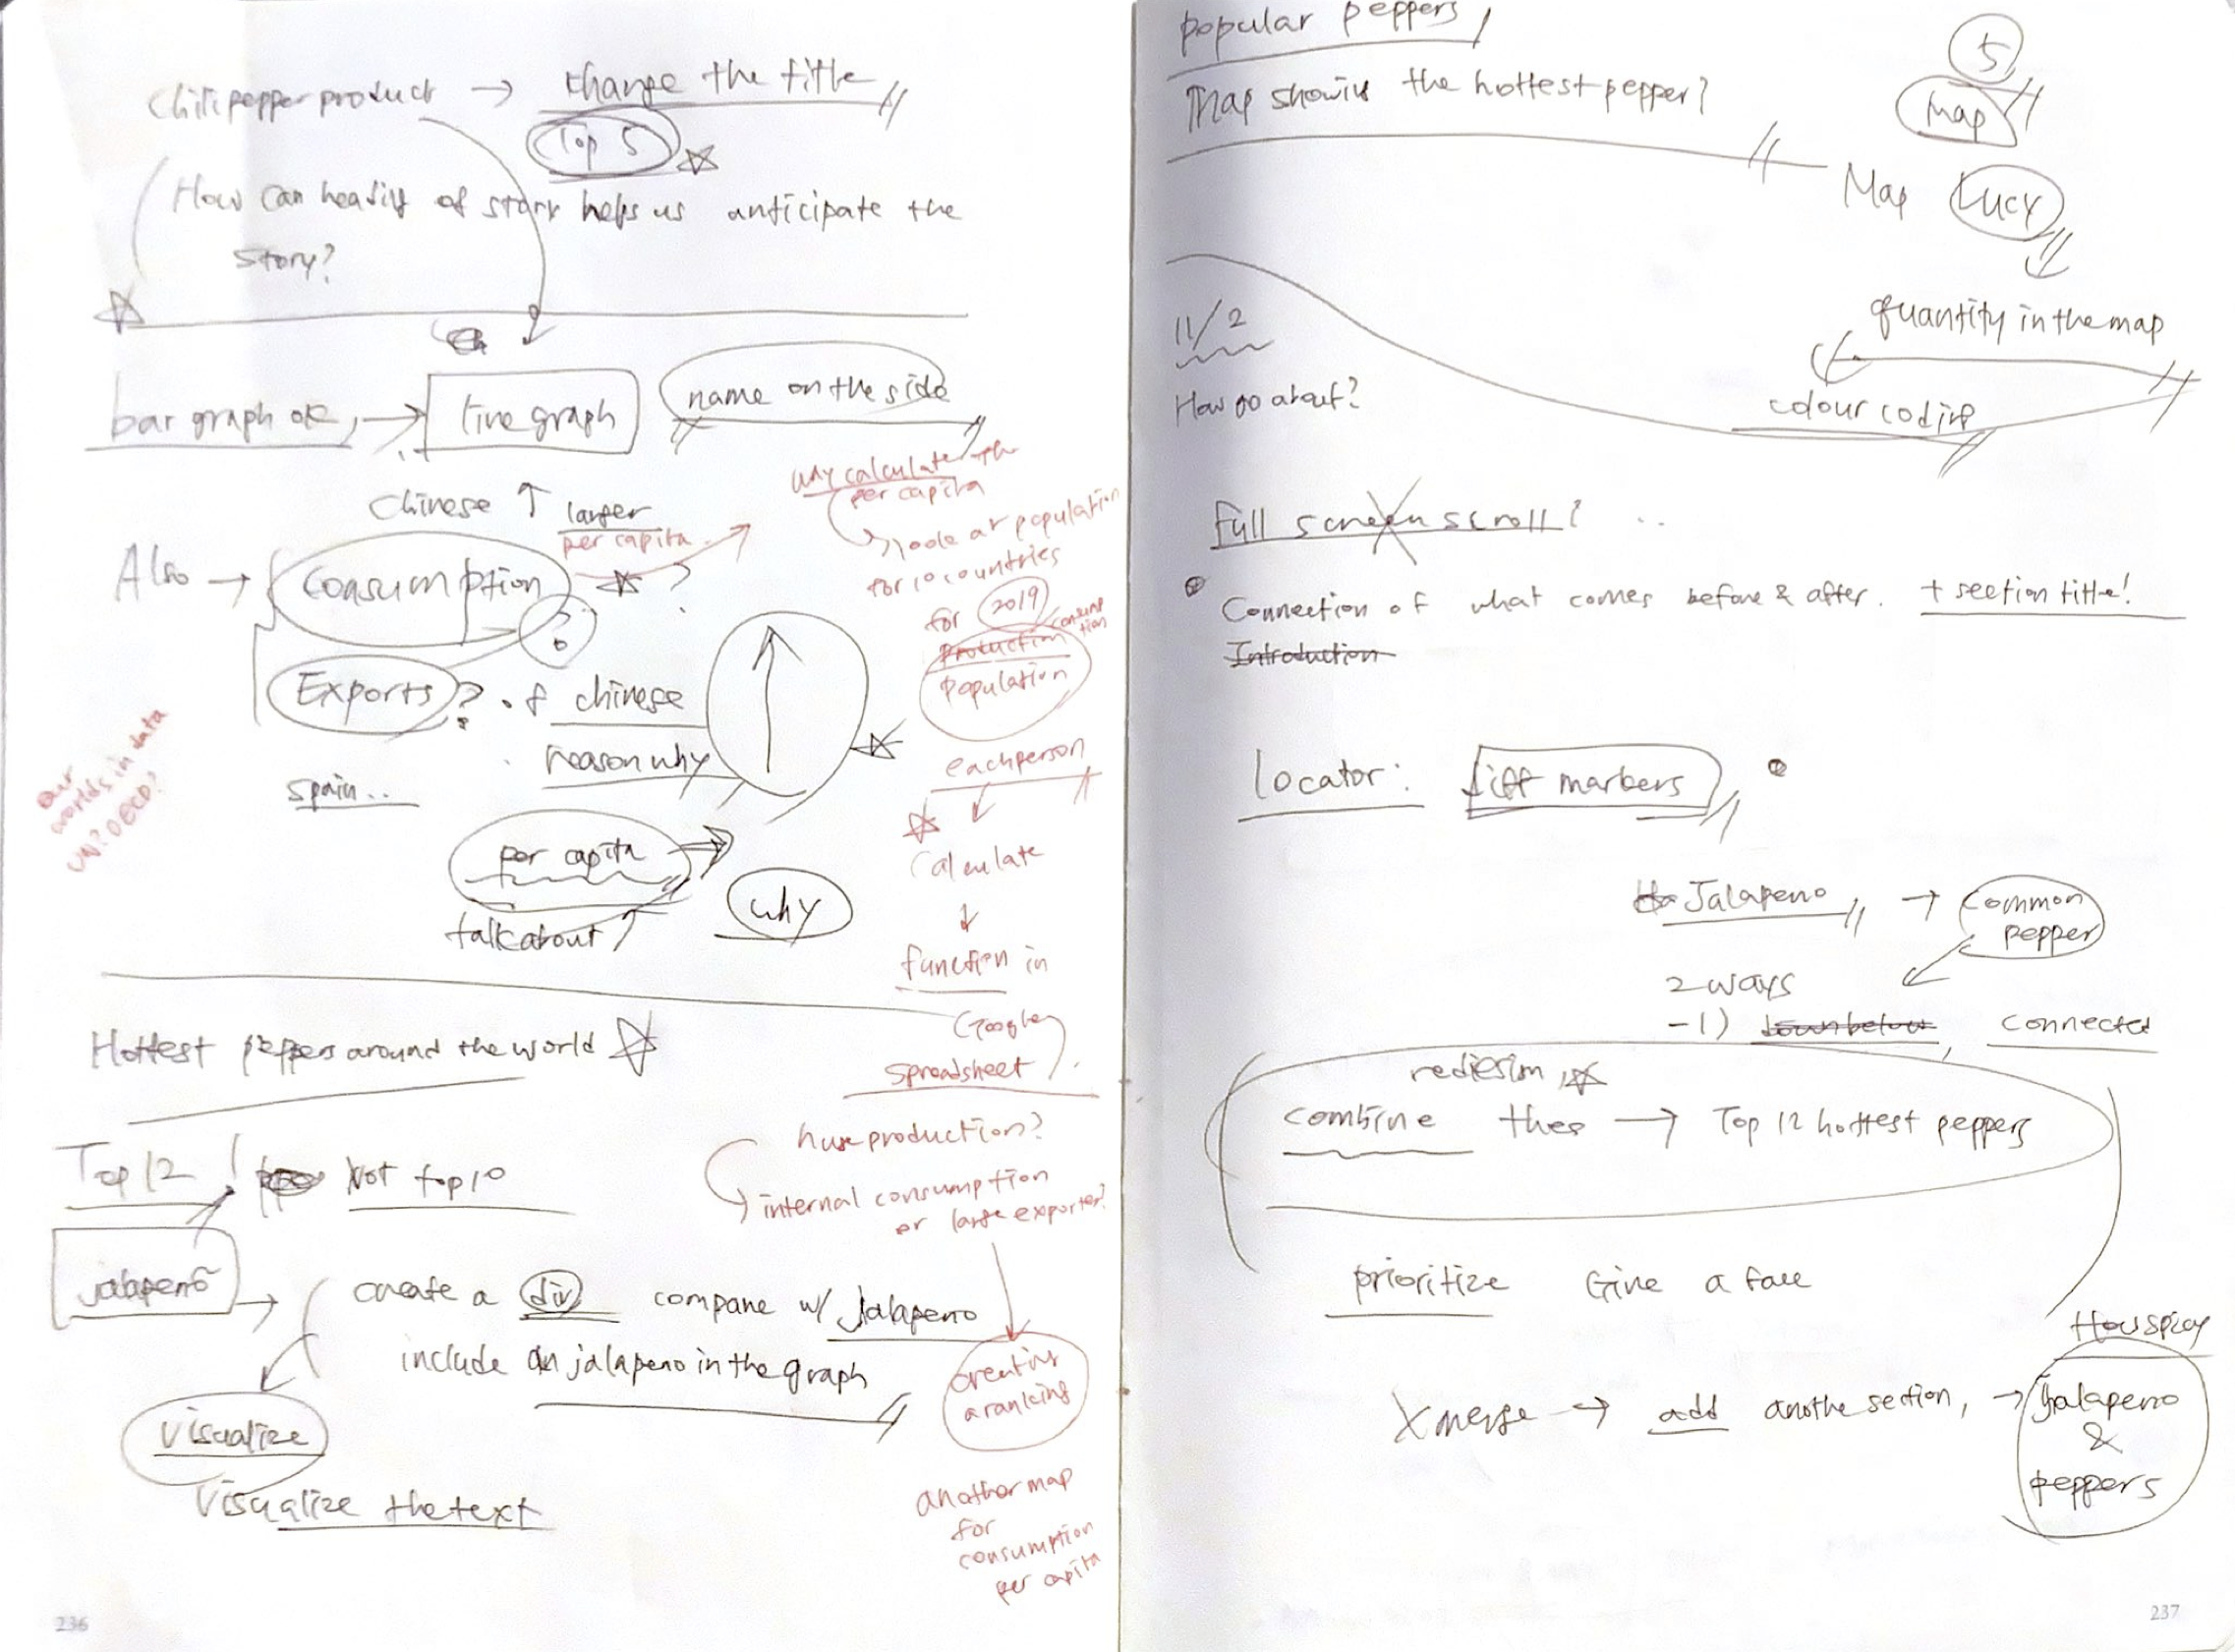 Chili pepper product → change the title
Top 5
How can heading of story helps us anticipate the
story?
bar graph ok, → line graph
name on the side
Chinese ↑ larger
per capita.
why calculate the
per capita
look at population
for 10 countries
for 2019
Production consumption
population
Also → Consumption ?
?
Exports? of chinese
reason why
spain..
our
worlds in data
UN? OECD?
each person
per capita
talk about
why
Calculate
↓
function in
Google
spreadsheet
Hottest peppers around the world
Top 12! Not top 10
huge production?
internal consumption
or large exporter?
jalapeño →
create a div compare w/ Jalapeno
include an jalapeno in the graph
creating
a ranking
visualize
Visualize the text
another map
for
consumption
per capita
236
popular peppers
Map showing the hottest pepper?
5
Map
Map Lucy
quantity in the map
colour coding
11/2
How go about?
Full screen scroll?
Connection of what comes before & after. + section title!
Introduction
locator: diff markers
Jalapeno → Common
pepper
2 ways
-1) down below, connected
combine → Top 12 hottest peppers
prioritize Give a face
How spicy
X merge → add anothe section, → Jalapeno
&
peppers
237